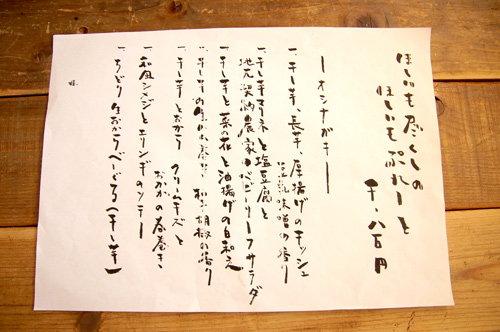 ほしいも尽くしの
ほしいもぷれーと
千、八百円
ーオシナガキー
一、干し芋、長芋、厚揚げのキッシュ
豆乳味噌の香り
一、干し芋マリネと塩豆腐と
地元契約農家のベビーリーフサラダ
一、干し芋と菜の花と油揚げの白和え
一、干し芋の生ハム巻き 和胡椒の香り
一、干し芋とおから クリームチーズと
おかかの春巻き
一、和風シシジとエリンギのソテー
一、ちどり 生おからべーどる(干し芋)